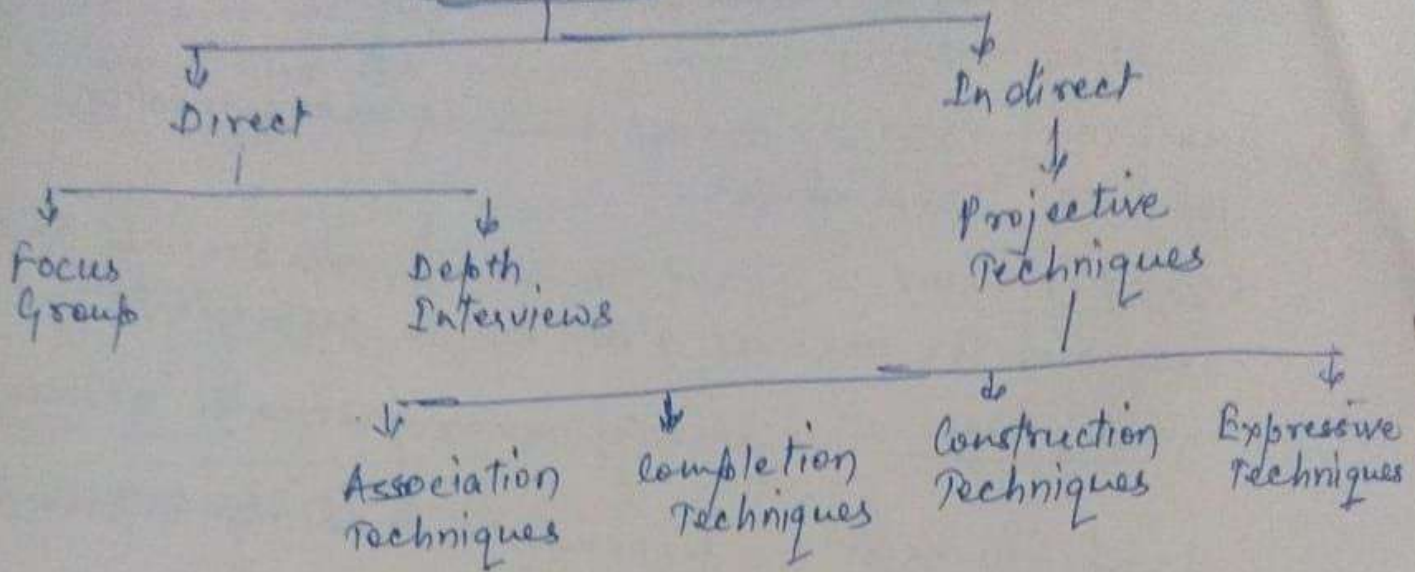 Direct
Indirect
Focus
Group
Depth
Interviews
Projective
Techniques
Association
Techniques
Completion
Techniques
Construction
Techniques
Expressive
Techniques